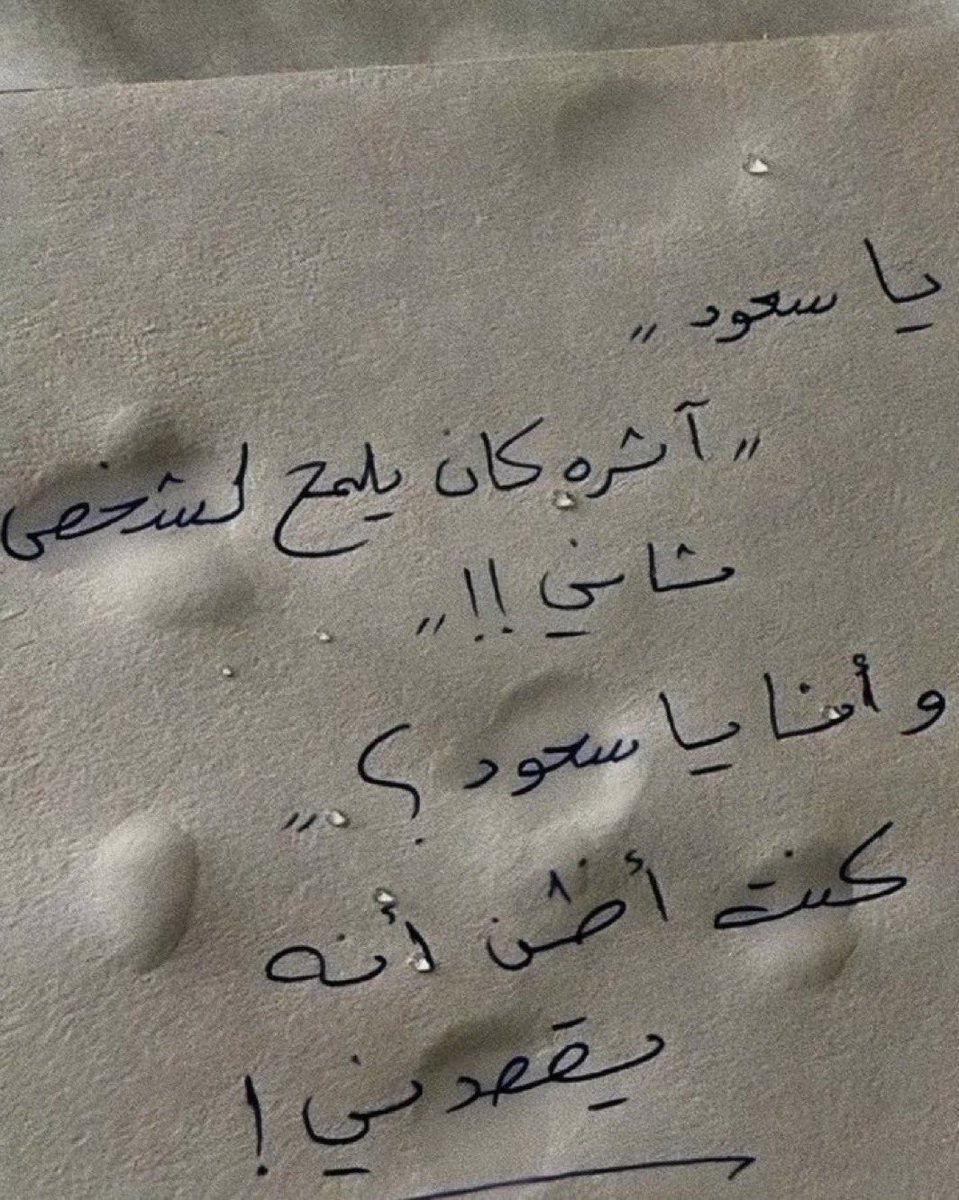 يا سعود ,,
,, آثره كان يلمح لشخص
ثاني !! ,,
و أنا يا سعود ؟ ,,
كنت أضن أنه
يقصدني !